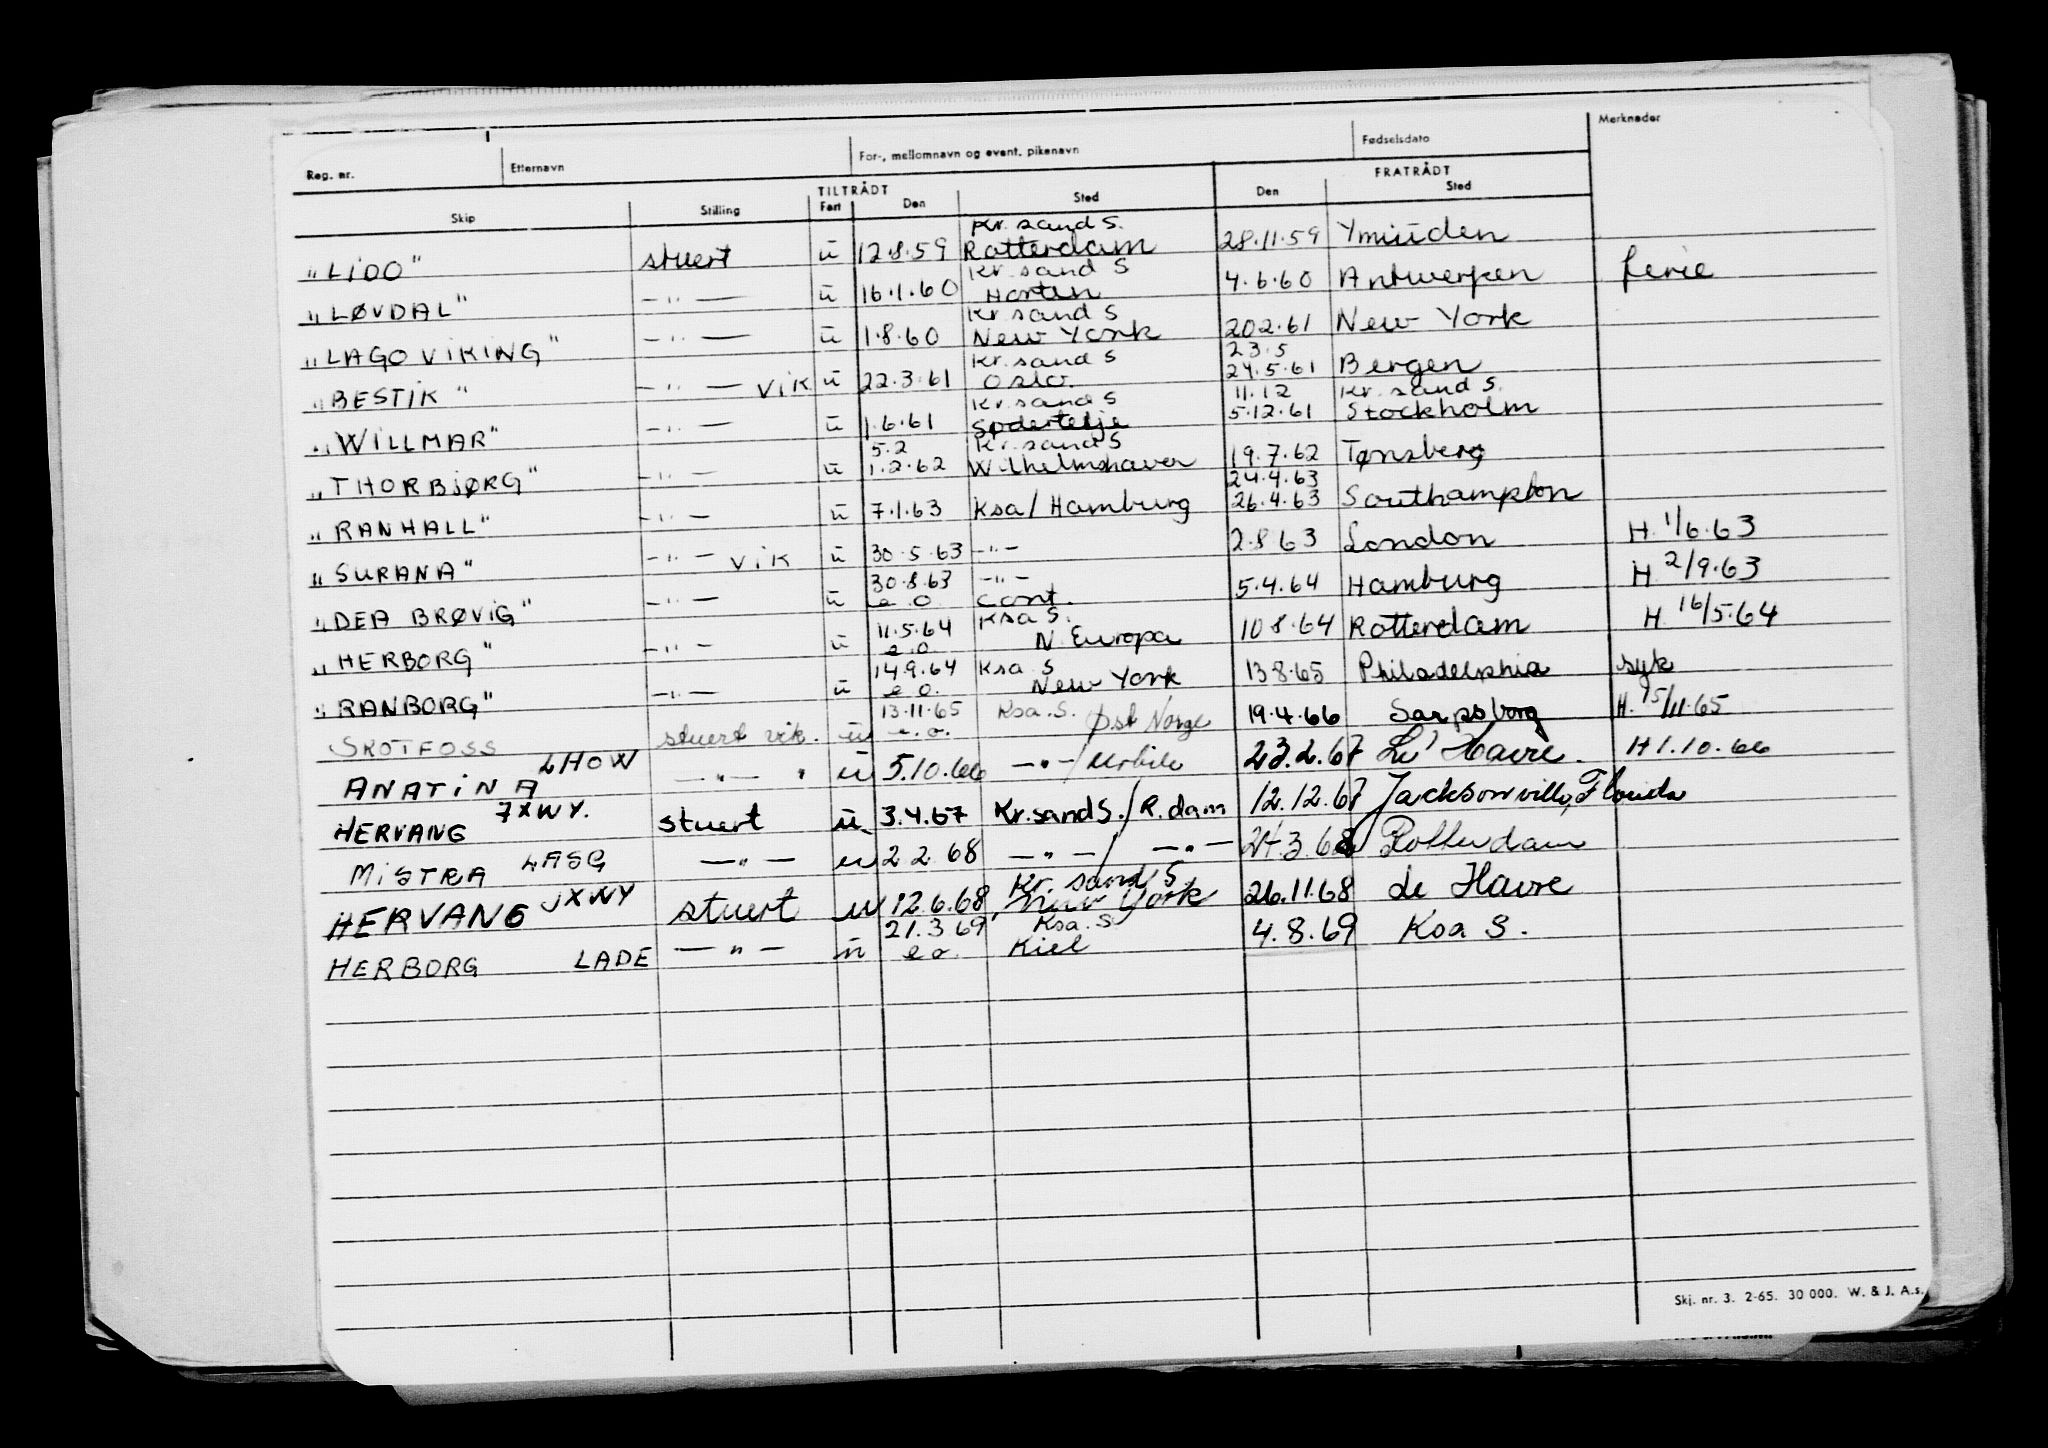 Reg. nr. Etternavn For-, mellomnavn og event. pikenavn Fødselsdato Merknader
TILTRÅDT FRATRÅDT
Skip Stilling Fart Den Sted Den Sted
Kr. sand S.
"LIDO" stuert u 12.8.59 Rotterdam 28.11.59 Ymuiden
Kr. sand S
"LØVDAL" -"- u 16.1.60 Horten 4.6.60 Antwerpen ferie
Kr sand S
"LAGO VIKING" -"- u 1.8.60 New York 202.61 New York
Kr. sand S 23.5
"BESTIK" -"- VIK u 22.3.61 Oslo. 24.5.61 Bergen
Kr. sand S 11.12 Kr. sand S.
"WILLMAR" -"- u 1.6.61 Södertelje 5.12.61 Stockholm
5.2 Kr. sand S
"THORBJØRG" -"- u 1.2.62 Wilhelmshaven 19.7.62 Tønsberg
24.4.63
"RANHALL" -"- u 7.1.63 Ksa/Hamburg 26.4.63 Southampton
"SURANA" -"- VIK u 30.5.63 -"- 2.8 63 London H. 1/6.63
30.8.63 -"-
"DEA BRØVIG" -"- u e.o. Cont. 5.4.64 Hamburg H. 2/9.63
11.5.64 Ksa S.
"HERBORG" -"- u e.o N. Europa 10 8.64 Rotterdam H. 16/5.64
149.64 Ksa S
"RANBORG" -"- u e o. New York 13 8.65 Philadelphia syk
13.11.65 Ksa. S.
SKOTFOSS stuert vik. u e.o. Øst Norge 19.4.66 Sarpsborg H. 15/11.65
ANATINA LHOW -"- " u 5.10.66 -"-/Mobile 23.2.67 Le' Havre. H 1.10.66
HERVANG JXWY. stuert u. 3.4.67 Kr.sand S./R.dam 12.12.67 Jacksonville, Florida
MISTRA LASG -"- u 2 2 68 -"-/ -"- 24.3.68 Rotterdam
Kr. sand S,
HERVANG JXWY stuert u 12.6.68, New York 26.11.68 le Havre
21.3 69 Ksa. S
HERBORG LADE -"- u e o. Kiel 4.8.69 Ksa S.
Skj. nr. 3. 2-65. 30 000. W. & J. A.s.